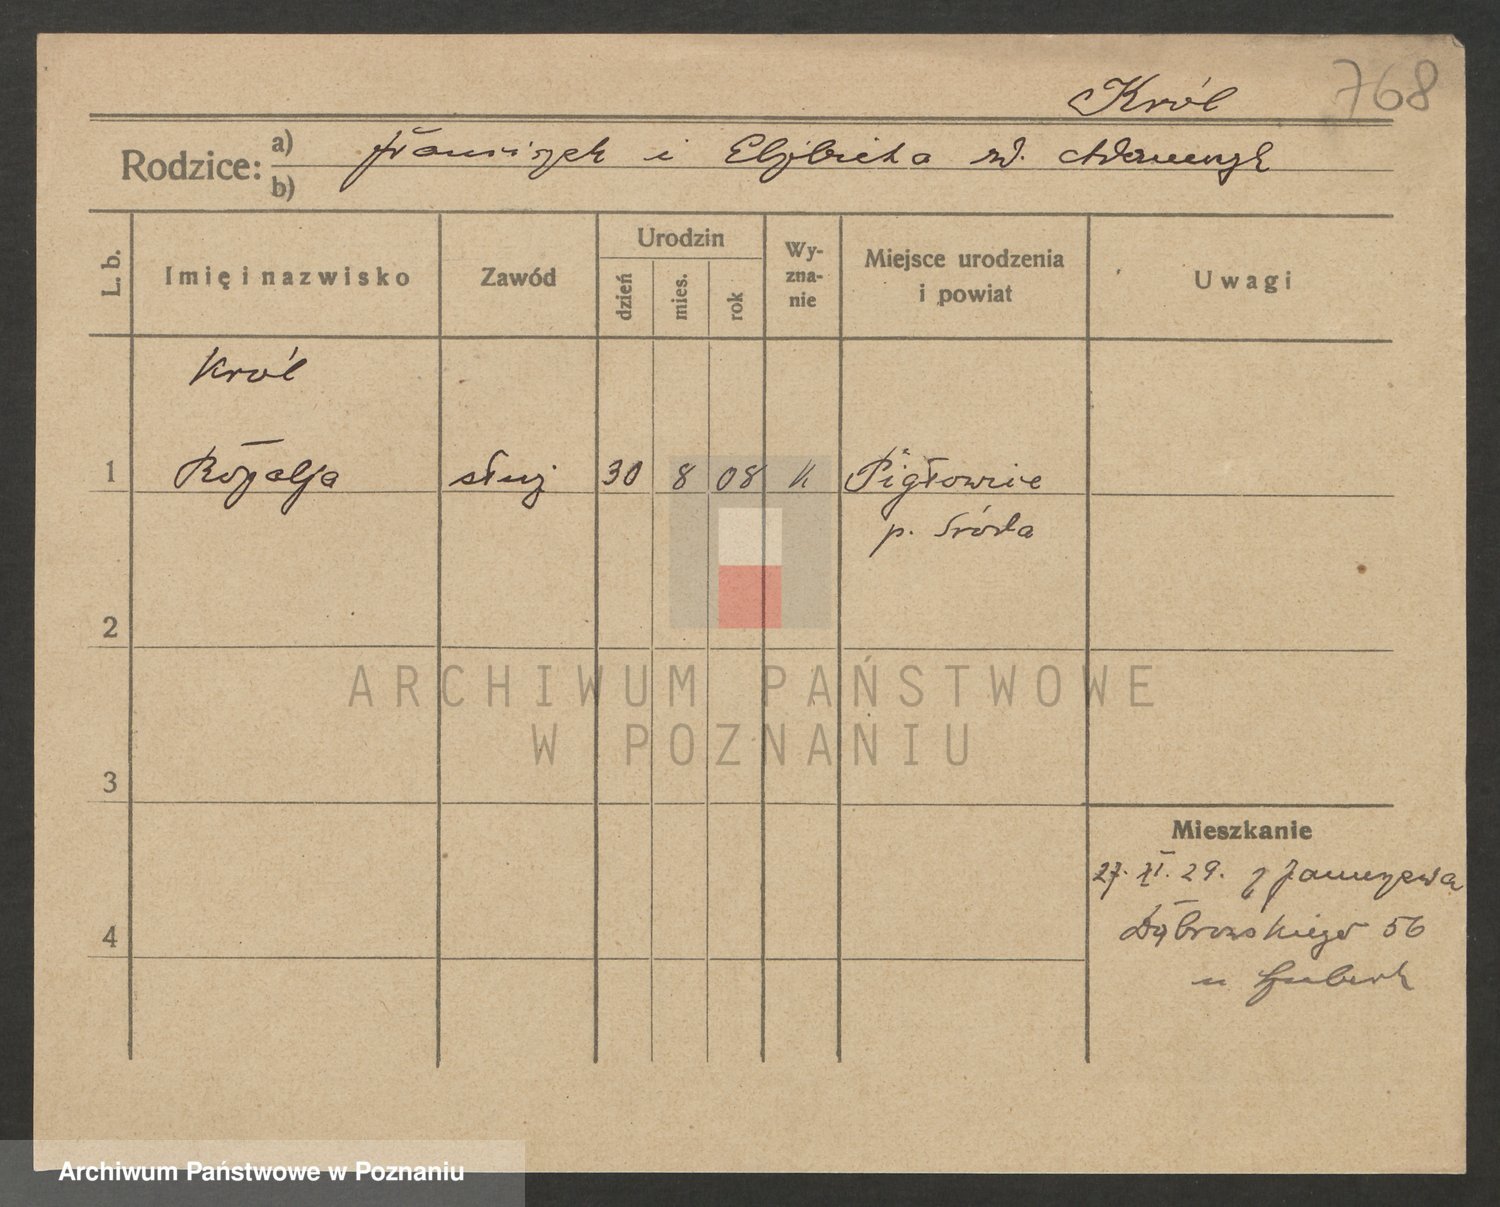 Król 768
Rodzice: a) Franciszek i Elżbieta zd. Adamczyk
b)
L. b.
Imię i nazwisko
Zawód
Urodzin
dzień
mies.
rok
Wy-
zna-
nie
Miejsce urodzenia
i powiat
Uwagi
Król
1 Rozalja służ 30 8 08 k Pigłowice
p. Środa
2
ARCHIWUM PAŃSTWOWE
W POZNANIU
3
Mieszkanie
27. XI. 29. z
4 Dąbrowskiego 56
u
Archiwum Państwowe w Poznaniu